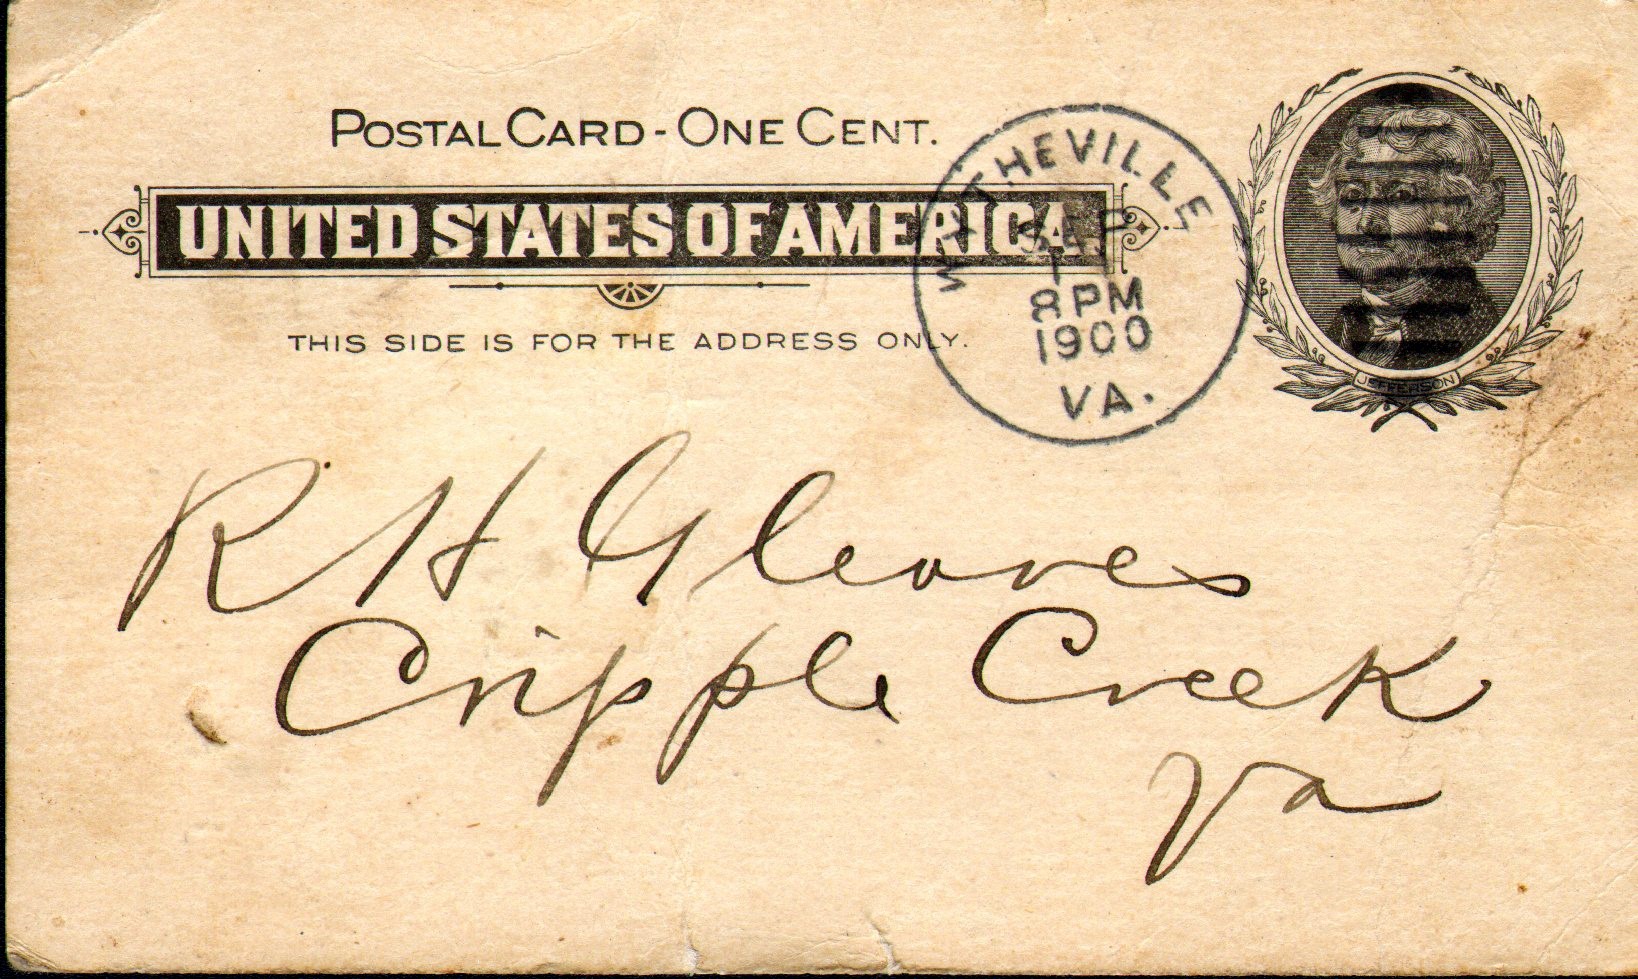 POSTAL CARD - ONE CENT.
UNITED STATES OF AMERICA
THIS SIDE IS FOR THE ADDRESS ONLY.
WYTHEVILLE
SEP
8 PM
1900
VA.
JEFFERSON
R H Gleaves
Cripple Creek
Va